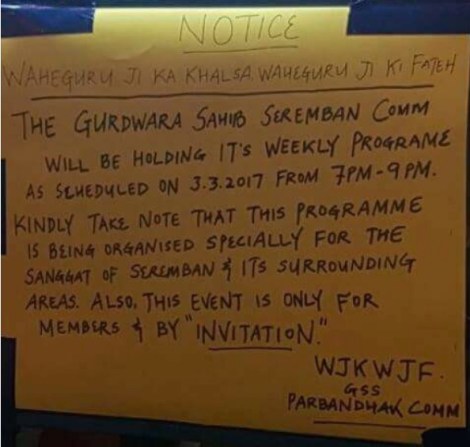 NOTICE
WAHEGURU JI KA KHALSA WAHEGURU JI KI FATEH
THE GURDWARA SAHIB SEREMBAN COMM
WILL BE HOLDING IT'S WEEKLY PROGRAME
AS SCHEDULED ON 3.3.2017 FROM 7PM-9PM.
KINDLY TAKE NOTE THAT THIS PROGRAMME
IS BEING ORGANISED SPECIALLY FOR THE
SANGGAT OF SEREMBAN & ITS SURROUNDING
AREAS. ALSO, THIS EVENT IS ONLY FOR
MEMBERS & BY "INVITATION."
WJKWJF.
GSS
PARBANDHAK COMM